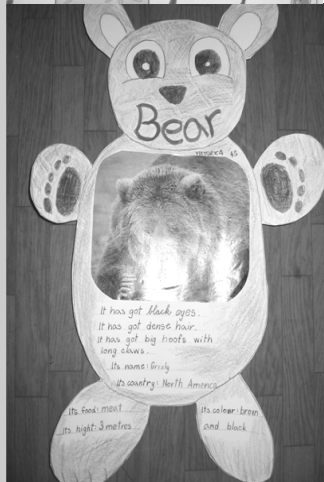 Bear
It has got black eyes.
It has got dense hair.
It has got big hoots with
long claws.
Its name: Grizly
Its country: North America
Its food: meat
Its hight: 3 metres
Its colour: brown
and black